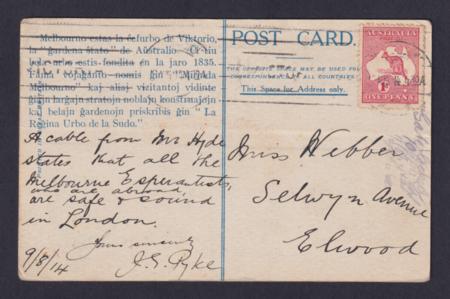 Melbourne estas la ĉefurbo de Viktorio,
la "ĝardena ŝtato" de Aŭstralio
bela urbo estis fondita en la jaro 1835.
Fama vojaĝanto nomis ĝin "Mirinda
Melbourne" kaj aliaj vizitantoj vidinte
ĝiajn larĝajn stratojn noblajn konstruaĵojn
kaj belajn ĝardenojn priskribis ĝin "La
Reĝina Urbo de la Sudo."
POST CARD.
This Space for Address only.
AUSTRALIA
ONE PENNY
A cable from Mr Hyde
states that all the
Melbourne Esperantists,
who are abroad,
are safe & sound
in London.
Yours sincerely
J. G. Pyke
9/8/14
Miss Webber
Selwyn Avenue
Elwood